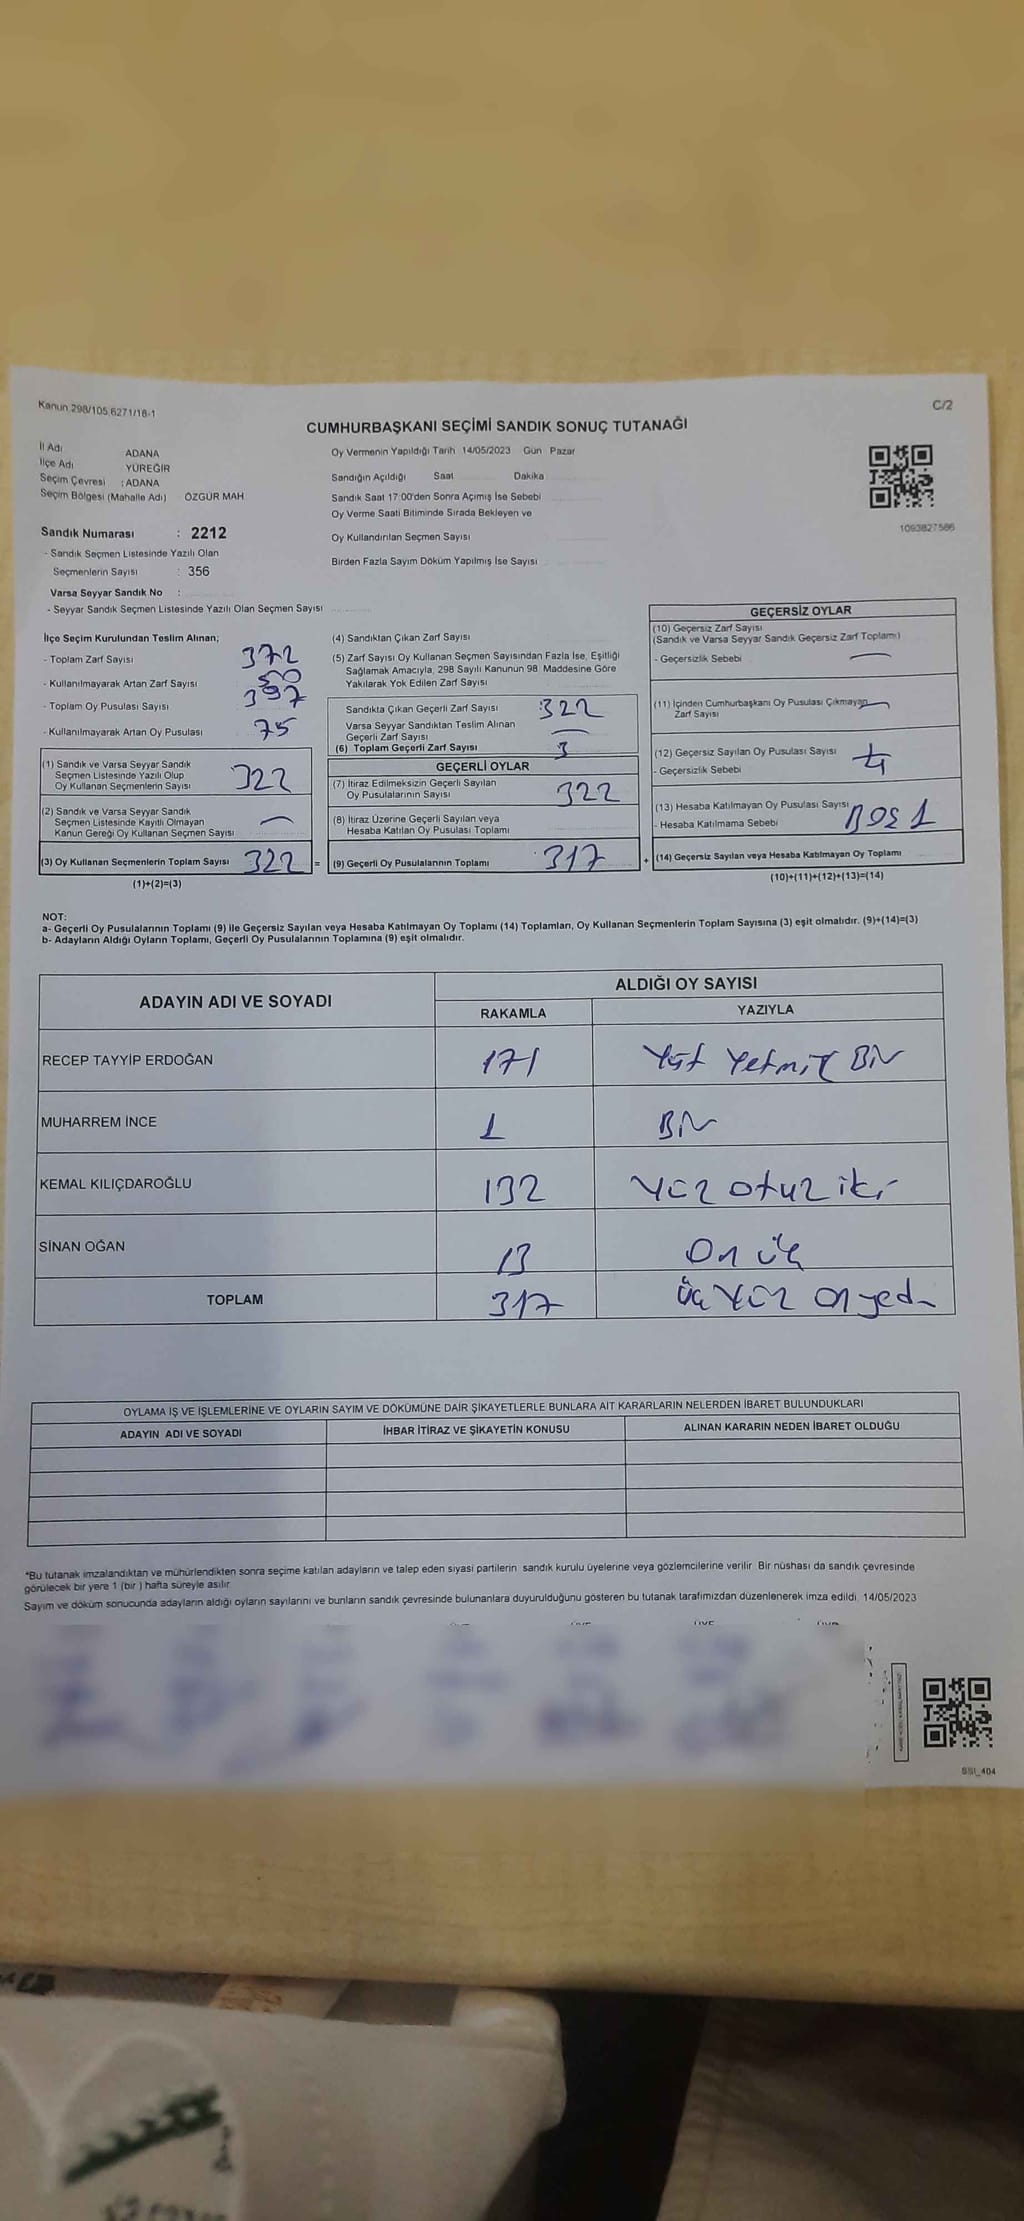 Kanun 298/105.6271/18-1
C/2
CUMHURBAŞKANI SEÇİMİ SANDIK SONUÇ TUTANAĞI
İl Adı ADANA
İlçe Adı YÜREĞİR
Seçim Çevresi : ADANA
Seçim Bölgesi (Mahalle Adı) ÖZGÜR MAH
Sandık Numarası : 2212
- Sandık Seçmen Listesinde Yazılı Olan
Seçmenlerin Sayısı : 356
Varsa Seyyar Sandık No :
- Seyyar Sandık Seçmen Listesinde Yazılı Olan Seçmen Sayısı
Oy Vermenin Yapıldığı Tarih 14/05/2023 Gün Pazar
Sandığın Açıldığı Saat Dakika
Sandık Saat 17:00'den Sonra Açımış İse Sebebi
Oy Verme Saati Bitiminde Sırada Bekleyen ve
Oy Kullandırılan Seçmen Sayısı
Birden Fazla Sayım Döküm Yapılmış İse Sayısı
1093827586
İlçe Seçim Kurulundan Teslim Alınan;
- Toplam Zarf Sayısı 372
- Kullanılmayarak Artan Zarf Sayısı 50
- Toplam Oy Pusulası Sayısı 397
- Kullanılmayarak Artan Oy Pusulası 75
(1) Sandık ve Varsa Seyyar Sandık
Seçmen Listesinde Yazılı Olup
Oy Kullanan Seçmenlerin Sayısı 322
(2) Sandık ve Varsa Seyyar Sandık
Seçmen Listesinde Kayıtlı Olmayan
Kanun Gereği Oy Kullanan Seçmen Sayısı —
(3) Oy Kullanan Seçmenlerin Toplam Sayısı 322 =
(1)+(2)=(3)
(4) Sandıktan Çıkan Zarf Sayısı
(5) Zarf Sayısı Oy Kullanan Seçmen Sayısından Fazla İse, Eşitliği
Sağlamak Amacıyla, 298 Sayılı Kanunun 98. Maddesine Göre
Yakılarak Yok Edilen Zarf Sayısı
Sandıkta Çıkan Geçerli Zarf Sayısı 322
Varsa Seyyar Sandıktan Teslim Alınan
Geçerli Zarf Sayısı —
(6) Toplam Geçerli Zarf Sayısı 3
GEÇERLİ OYLAR
(7) İtiraz Edilmeksizin Geçerli Sayılan
Oy Pusulalarının Sayısı 322
(8) İtiraz Üzerine Geçerli Sayılan veya
Hesaba Katılan Oy Pusulası Toplamı
(9) Geçerli Oy Pusulalarının Toplamı 317 +
GEÇERSİZ OYLAR
(10) Geçersiz Zarf Sayısı
(Sandık ve Varsa Seyyar Sandık Geçersiz Zarf Toplamı)
- Geçersizlik Sebebi —
(11) İçinden Cumhurbaşkanı Oy Pusulası Çıkmayan
Zarf Sayısı —
(12) Geçersiz Sayılan Oy Pusulası Sayısı 4
- Geçersizlik Sebebi
(13) Hesaba Katılmayan Oy Pusulası Sayısı
- Hesaba Katılmama Sebebi BOŞ 1
(14) Geçersiz Sayılan veya Hesaba Katılmayan Oy Toplamı
(10)+(11)+(12)+(13)=(14)
NOT:
a- Geçerli Oy Pusulalarının Toplamı (9) ile Geçersiz Sayılan veya Hesaba Katılmayan Oy Toplamı (14) Toplamları, Oy Kullanan Seçmenlerin Toplam Sayısına (3) eşit olmalıdır. (9)+(14)=(3)
b- Adayların Aldığı Oyların Toplamı, Geçerli Oy Pusulalarının Toplamına (9) eşit olmalıdır.
ADAYIN ADI VE SOYADI ALDIĞI OY SAYISI
RAKAMLA YAZIYLA
RECEP TAYYİP ERDOĞAN 171 Yüz Yetmiş Bir
MUHARREM İNCE 1 Bir
KEMAL KILIÇDAROĞLU 132 Yüz otuz iki
SİNAN OĞAN 13 On üç
TOPLAM 317 üç Yüz on yedi
OYLAMA İŞ VE İŞLEMLERİNE VE OYLARIN SAYIM VE DÖKÜMÜNE DAİR ŞİKAYETLERLE BUNLARA AİT KARARLARIN NELERDEN İBARET BULUNDUKLARI
ADAYIN ADI VE SOYADI İHBAR İTİRAZ VE ŞİKAYETİN KONUSU ALINAN KARARIN NEDEN İBARET OLDUĞU
*Bu tutanak imzalandıktan ve mühürlendikten sonra seçime katılan adayların ve talep eden siyasi partilerin sandık kurulu üyelerine veya gözlemcilerine verilir. Bir nüshası da sandık çevresinde
görülecek bir yere 1 (bir) hafta süreyle asılır.
Sayım ve döküm sonucunda adayların aldığı oyların sayılarını ve bunların sandık çevresinde bulunanlara duyurulduğunu gösteren bu tutanak tarafımızdan düzenlenerek imza edildi. 14/05/2023
SSI_404